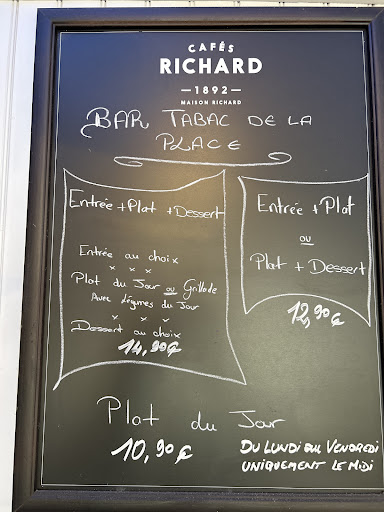 CAFÉS
RICHARD
—1892—
MAISON RICHARD
BAR TABAC DE LA
PLACE
Entrée + Plat + Dessert
Entrée au choix
x x x
Plat du Jour ou Grillade
Avec légumes du Jour
x x x
Dessert au choix
14,90€
Entrée + Plat
ou
Plat + Dessert
12,90€
Plat du Jour
10,90€
DU LUNDI au VENDREDI
UNIQUEMENT LE MIDI